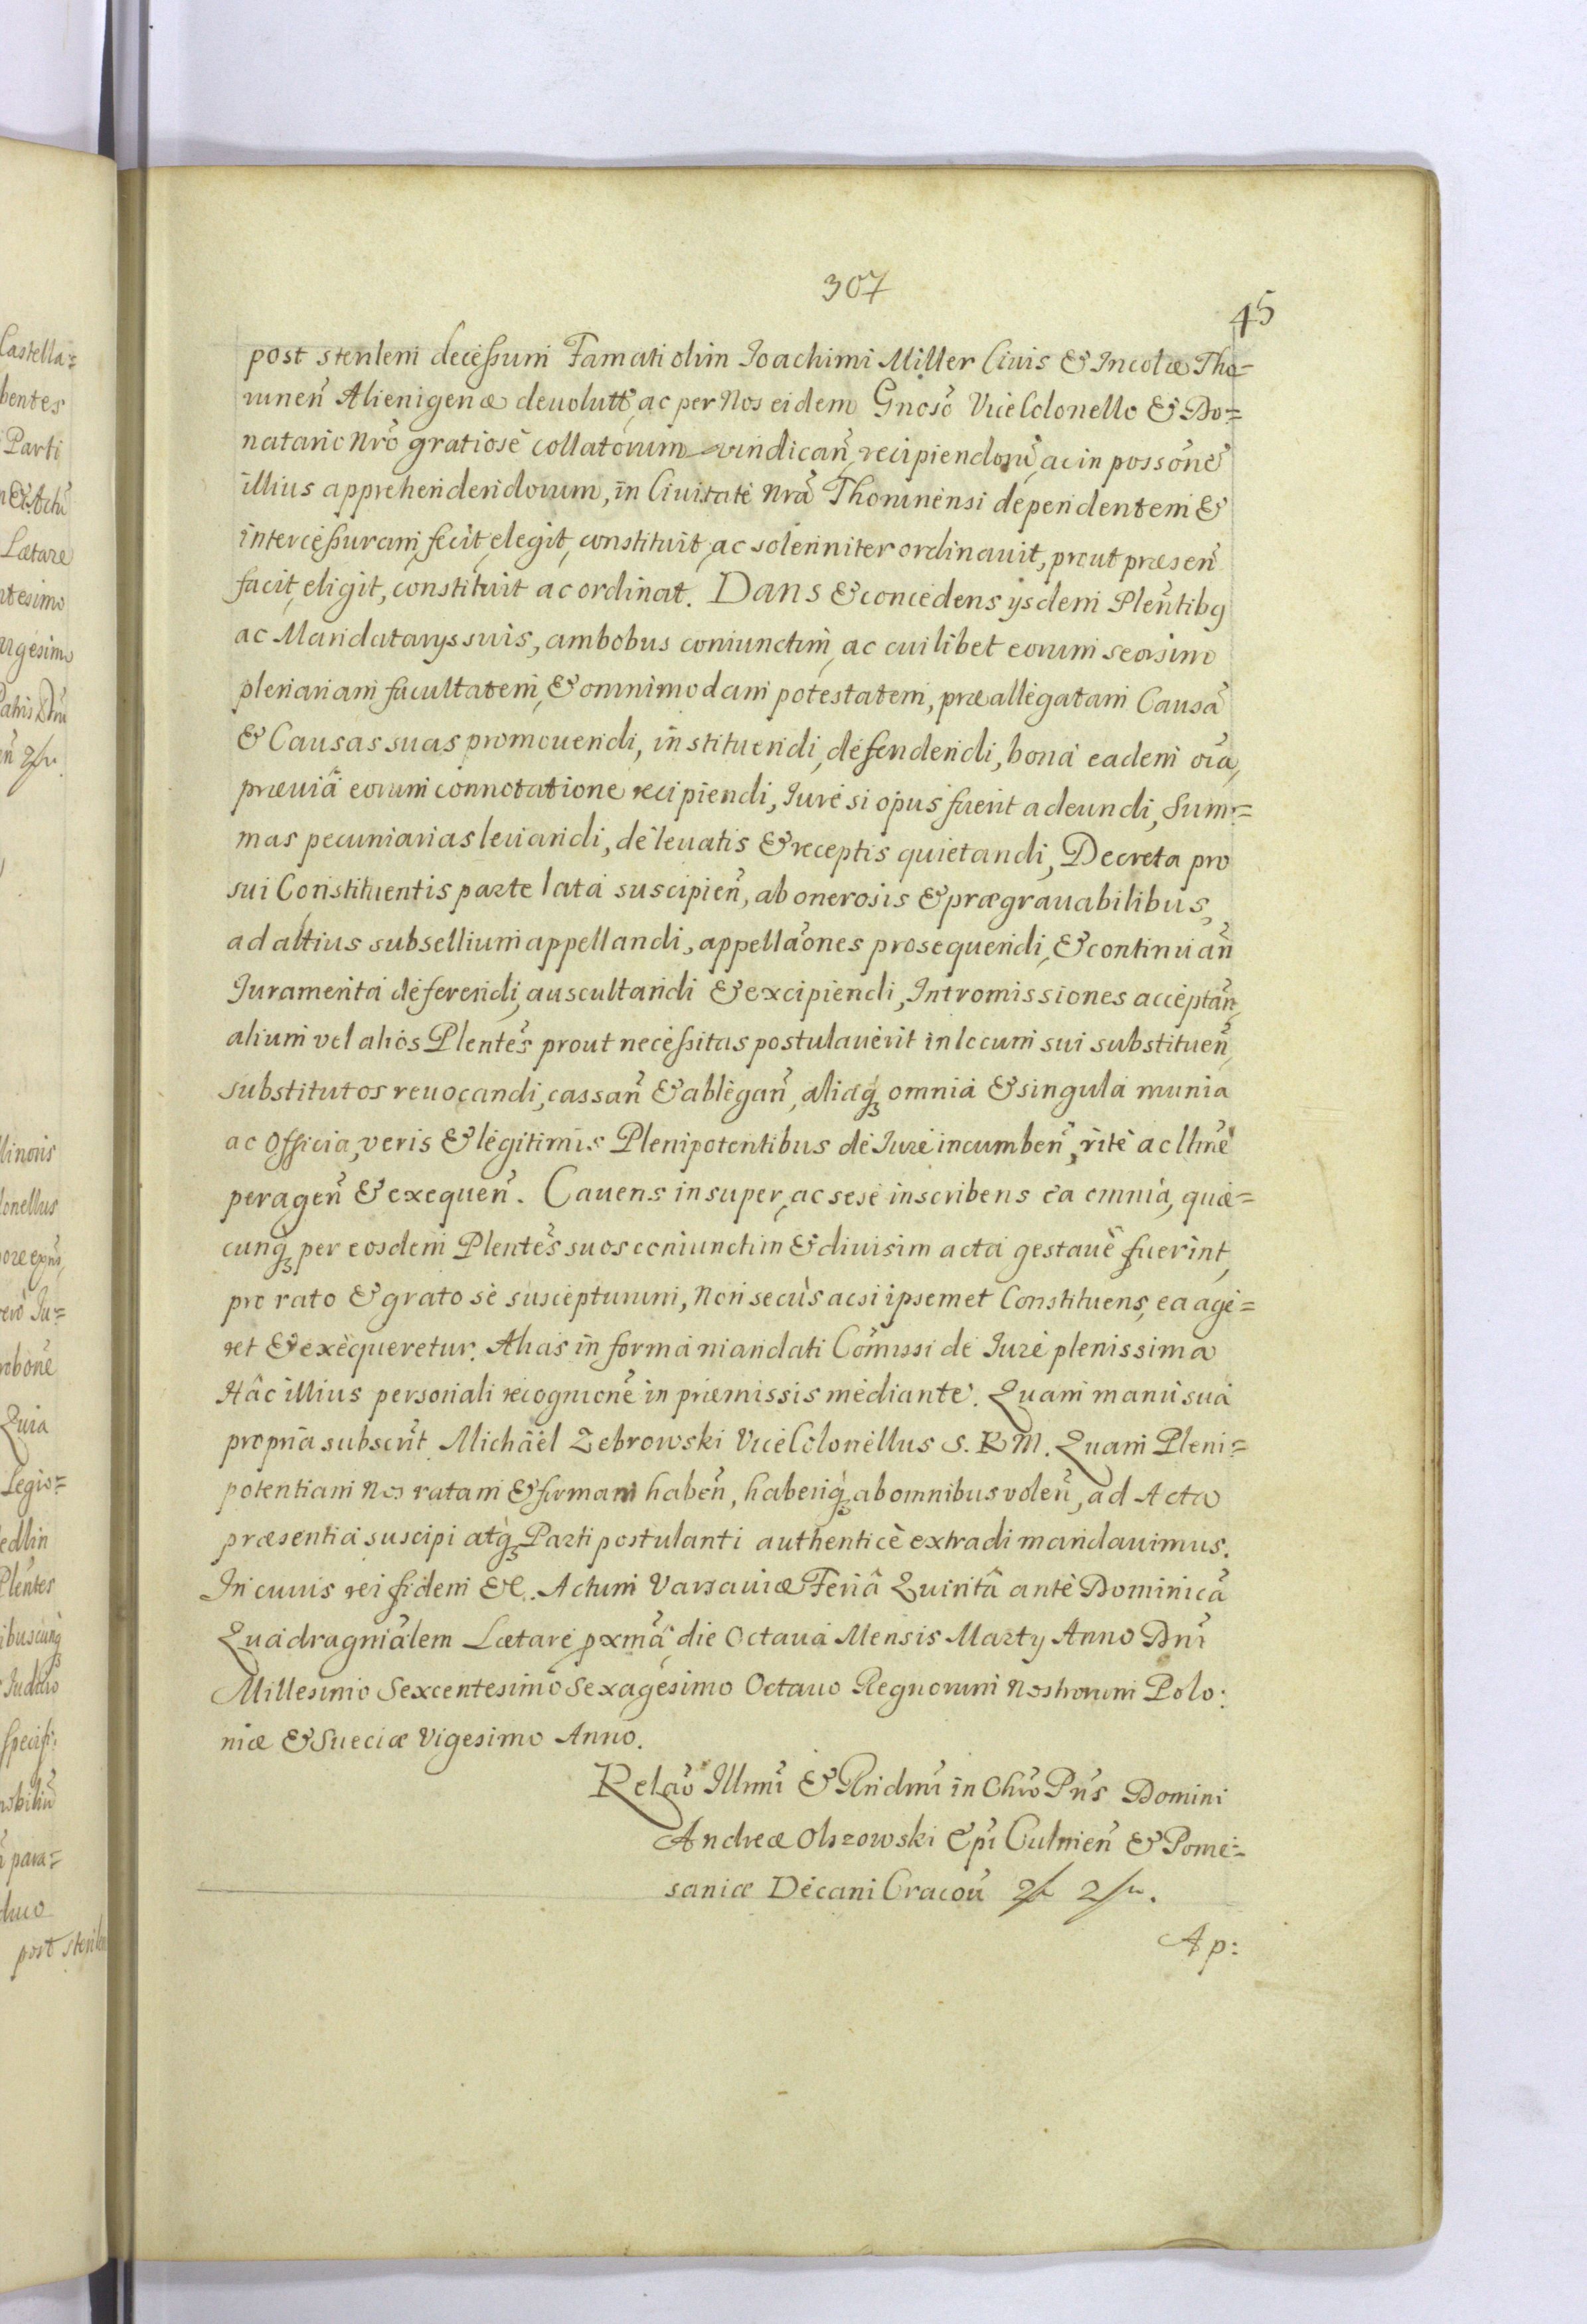 307
45
post sterilem deceßum Famati olim Ioachimi Miller Ciuis & Incolæ Tho=
runeñ Alienigenæ deuolutt, ac per Nos eidem Gnoso Vice Colonello & Do=
natario Nro gratiosè collatorum vindicañ, recipiendorũ, ac in possone
illius apprehendendorum, in Ciuitate Nrã Thorunensi dependentem &
interceßuram, fecit, elegit, constituit, ac solenniter ordinauit, prout præseñ
facit, eligit, constituit ac ordinat. Dans & concedens ysdem Plentibq
ac Mandatarys suis, ambobus coniunctim, ac cuilibet eorum seorsim
plenariam facultatem, & omnimodam potestatem, præallegatam Causã
& Causas suas promouendi, instituendi, defendendi, bona eadem oia,
præuiâ eorum connotatione recipiendi, Iure si opus fuerit adeundi, Sum=
mas pecuniarias leuandi, de leuatis & receptis quietandi, Decreta pro
sui Constituentis parte lata suscipieñ, ab onerosis & prægrauabilibus
ad altius subsellium appellandi, appellaones prosequendi, & continuañ
Iuramenta deferendi, auscultandi & excipiendi, Intromissiones acceptañ,
alium vel alios Plentes prout neceßitas postulauerit in locum sui substitueñ,
substitutos reuocandi, cassañ & ablegañ, aliaq omnia & singula munia
ac Officia, veris & legitimis Plenipotentibus de Iure incumbeñ, ritè ac llme
perageñ & exequeñ. Cauens insuper, ac sese inscribens ea omnia, quæ=
cunq per eosdem Plentes suos coniunctim & diuisim acta gestaue fuerint,
pro rato & grato se suscepturum, Non secùs acsi ipsemet Constituens, ea age=
ret & exequeretur. Alias in forma mandati Comissi de Iure plenissima
Hâc illius personali recognione in præmissis mediante. Quam manu sua
propria subscrit Michaël Zebrowski Vice Colonellus S. R M. Quam Pleni=
potentiam Nos ratam & firmam habeñ, haberiq ab omnibus voleñ, ad Acta
præsentia suscipi atq Parti postulanti authenticè extradi mandauimus.
In cuius rei fidem &c. Actum Varsauiæ Feriâ Quintâ ante Dominicã
Quadragmalem Lætare pxmã, die Octaua Mensis Marty Anno Dni
Millesimo Sexcentesimo Sexagesimo Octauo Regnorum Nostrorum Polo:
niæ & Sueciæ Vigesimo Anno.
Relao Illmi & Rndmi in Chro Pris Domini
Andreæ Olszowski Epi Culmeñ & Pome=
saniæ Decani Cracou
Ap: